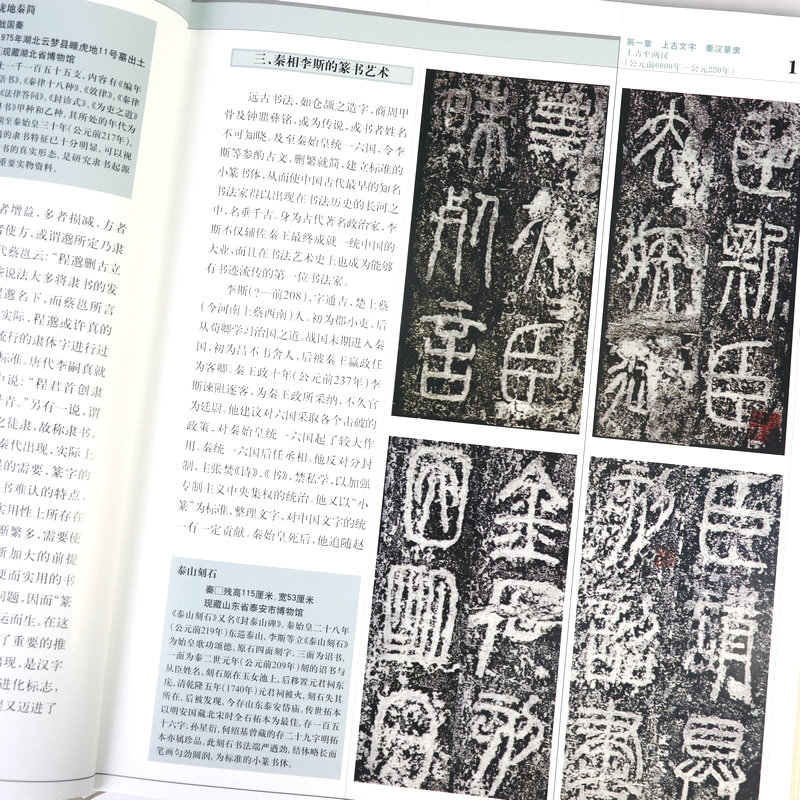 虎地秦简
战国秦
1975年湖北云梦县睡虎地11号墓出土
现藏湖北省博物馆
土一千一百五十五支，内容有《编年
语书》、《秦律十八种》、《效律》、《秦律
《法律答问》、《封诊式》、《为吏之道》
日书》甲种和乙种，其所处的年代为
期至秦始皇三十年(公元前217年)。
的隶书特征已十分明显，可以视
书的真实形态，是研究隶书起源
重要实物资料。
者增益，多者损减，方者
者使方，或谓邈所定乃隶
代蔡邕云：“程邈删古立
些说法大多将隶书的发
程邈名下，而蔡邕所言
实际，程邈或许真的
流行的隶体字进行过
标准。唐代李嗣真就
中说：“程君首创隶
昔。”另有一说，谓
之徒隶，故称隶书。
秦代出现，实际上
的需要，篆字的
书难认的特点。
实用性上所存在
渐繁多，需要使
断加大的前提
便而实用的书
问题，因而“篆
运而生。在这
了重要的推
出现，是汉字
进化标志，
又迈进了
第一章 上古文字 秦汉篆隶
上古至两汉
(公元前6000年—公元220年)
1
三、秦相李斯的篆书艺术
远古书法，如仓颉之造字，商周甲
骨及钟鼎彝铭，或为传说，或书者姓名
不可知晓。及至秦始皇统一六国，令李
斯等参酌古文，删繁就简，建立标准的
小篆书体，从而使中国古代最早的知名
书法家得以出现在书法历史的长河之
中，名垂千古。身为古代著名政治家，李
斯不仅辅佐秦王最终成就一统中国的
大业，而且在书法艺术史上也成为能够
有书迹流传的第一位书法家。
李斯(?—前208)，字通古，楚上蔡
(今河南上蔡西南)人。初为郡小吏，后
从荀卿学习治国之道。战国末期进入秦
国，初为吕不韦舍人，后被秦王嬴政任
为客卿。秦王政十年(公元前237年)李
斯谏阻逐客，为秦王政所采纳，不久官
为廷尉。他建议对六国采取各个击破的
政策，对秦始皇统一六国起了较大作
用。秦统一六国后任丞相。他反对分封
制，主张焚《诗》、《书》，禁私学，以加强
专制主义中央集权的统治。他又以“小
篆”为标准，整理文字，对中国文字的统
一有一定贡献。秦始皇死后，他追随赵
泰山刻石
秦□残高115厘米，宽53厘米
现藏山东省泰安市博物馆
《泰山刻石》又名《封泰山碑》，秦始皇二十八年
(公元前219年)东巡泰山，李斯等立《泰山刻石》
为始皇歌功颂德。原石四面刻字，三面为诏书，
一面为秦二世元年(公元前209年)刻的诏书与
从臣姓名。刻石原在玉女池上，后移置元君祠东
庑。清乾隆五年(1740年)元君祠被火，刻石失其
所在，后被发现，今存山东泰安岱庙。传世拓本
以明安国藏北宋时全石拓本为最佳，存一百五
十六字；孙星衍、何绍基曾藏的存二十九字明拓
本亦属珍品。此刻石书法端严遒劲，结体略长而
笔画匀劲圆润，为标准的小篆书体。